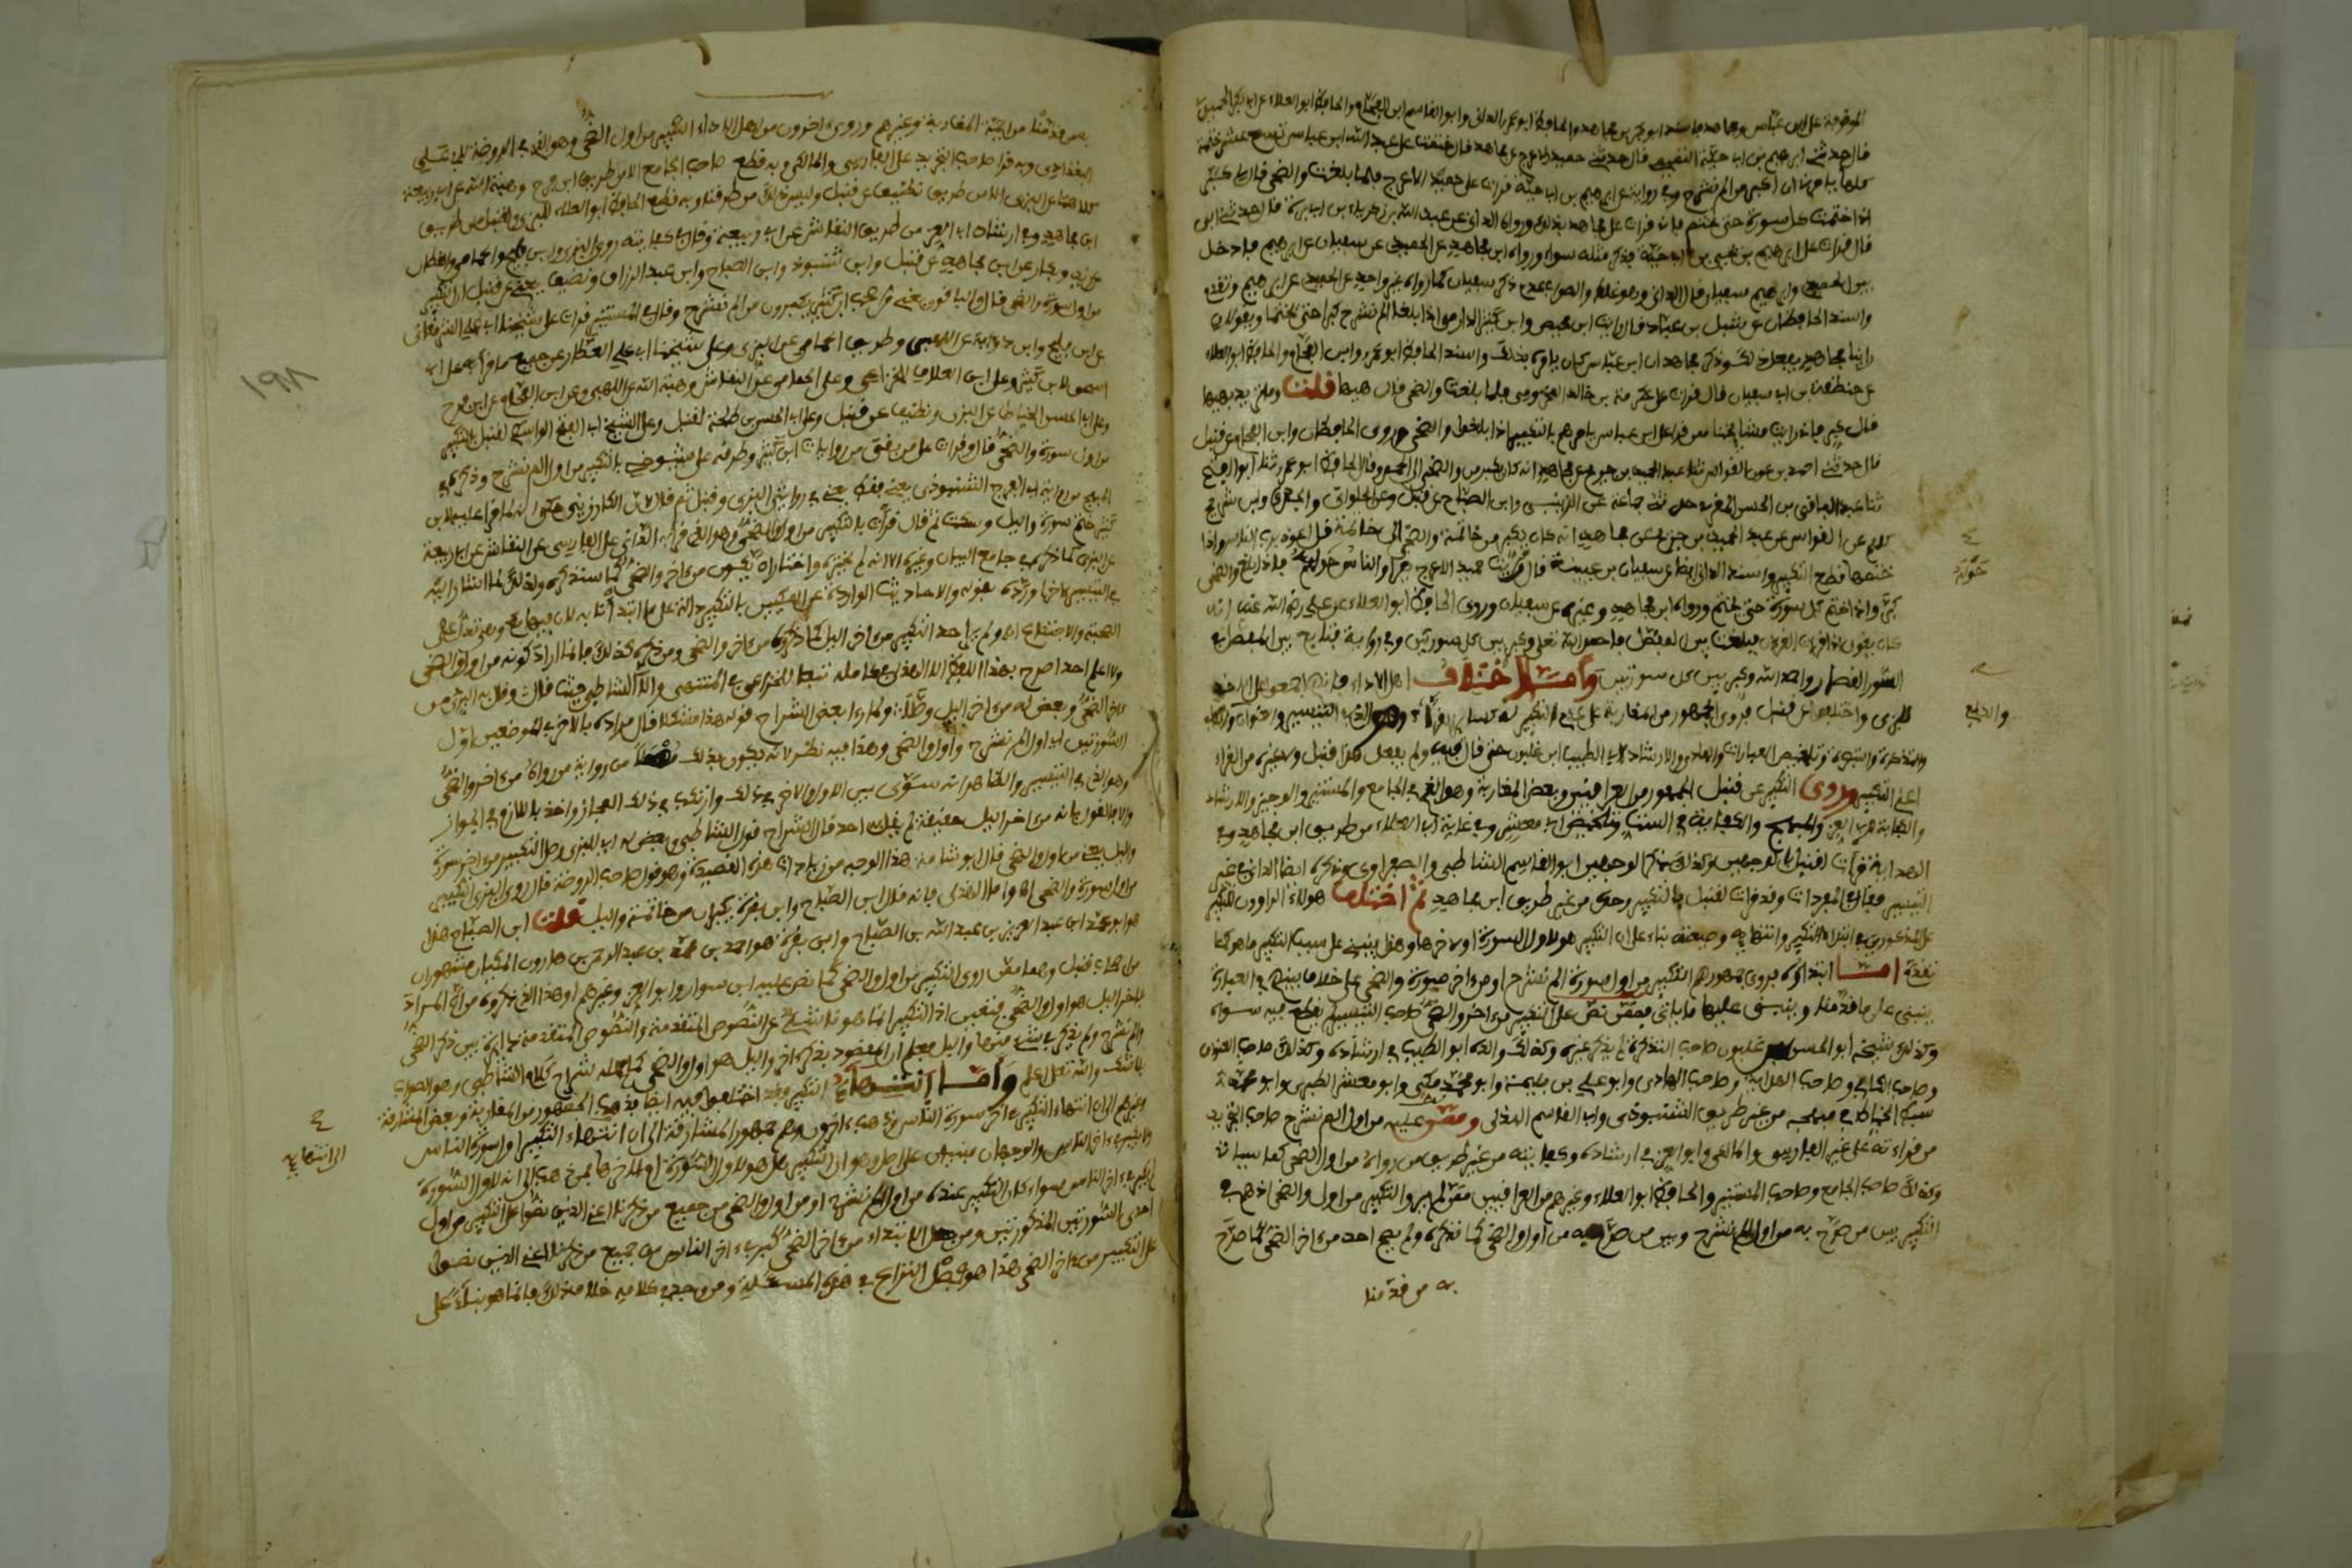 الموقوفة على ابن عباس ومجاهد فاسند ابو بكر بن مجاهد والحافظ ابو عمرو الداني وابو القاسم ابن الفحام والحافظ ابو العلاء عن ابي بكر الحميدي
قال حدثني ابرهيم بن ابي حية التميمي قال حدثني حميد الاعرج عن مجاهد قال ختمت على عبد الله ابن عباس تسع عشرة ختمة
كلها يامرني ان اكبر من الم نشرح وفي رواية عن ابرهيم بن ابي حية قرات على حميد الاعرج فلما بلغت والضحى قال لي كبر
اذا ختمت كل سورة حتى تختم فاني قرات على مجاهد
قال قرات على ابرهيم بن يحيى بن ابي حية فذكر مثله سواء ورواه ابن مجاهد عن الحميدي عن سفيان عن ابرهيم فادخل
بين الحميدي وابرهيم سفيان قال الداني وهو غلط والصواب عدم ذكر سفيان كما رواه غير واحد عن الحميدي عن ابرهيم
واسند الحافظان عن شبل بن عباد قال رايت ابن محيصن وابن كثير الداري اذا بلغا الم نشرح كبرا حتى يختما ويقولان
راينا مجاهدا يفعل ذلك وذكر مجاهد ان ابن عباس كان يامره بذلك واسند الحافظ ابو عمرو وابن الفحام والحافظ ابو العلاء
عن حنظلة بن ابي سفيان قال قرات على عكرمة بن خالد المخزومي فلما بلغت والضحى قال هيها قلت وما تريد بهيها
قال كبر فاني رايت مشايخنا ممن قرا على ابن عباس يامرهم بالتكبير اذا بلغوا والضحى وروى الحافظان وابن الفحام عن قنبل
قال حدثني احمد بن عون القواس ثنا عبد الحميد بن جريج عن مجاهد انه كان يكبر من والضحى الى الحمد وقال الحافظ ابو عمرو ثنا ابو الفتح
ثنا عبد الباقي بن الحسن المقرئ
كلهم عن القواس عن عبد الحميد بن جريج عن مجاهد انه كان يكبر من خاتمة والضحى الى خاتمة قل اعوذ برب الناس واذا
ختمها قطع التكبير واسند الداني ايضا عن سفيان بن عيينة قال رايت حميد الاعرج يقرا والناس حوله فاذا بلغ والضحى
كبر اذا ختم كل سورة حتى يختم ورواه ابن مجاهد وغيره عن سفيان وروى الحافظ ابو العلاء عن علي رضي الله عنه انه
كان يقول اذا قرات القران فبلغت بين المفصل فاحمد الله تعلى وكبر بين كل سورتين وفي رواية فتابع بين المفصل في
السور القصار واحمد الله وكبر بين كل سورتين واما اختلاف اهل الاداء فانهم اجمعوا على الاخذ
للبزي واختلفوا عن قنبل فروى الجمهور من المغاربة عنه عدم التكبير كسائر القراء وهو الذي في التيسير والعنوان والكافي
والتذكرة والتبصرة وتلخيص العبارات والهادي والارشاد لابي الطيب ابن غلبون حتى قال فيه ولم يفعل هذا قنبل ولا غيره من القراء
اعني التكبير وروى التكبير عن قنبل الجمهور من العراقيين وبعض المغاربة وهو الذي في الجامع والمستنير والوجيز والارشاد
والكفاية لابي العز والمبهج والكفاية في الست وتلخيص ابي معشر وفي غاية ابي العلاء من طريق ابن مجاهد وفي
الهداية قرات لقنبل بالوجهين وكذلك ذكر الوجهين ابو القاسم الشاطبي والصفراوي وذكره ايضا الداني في غير
التيسير فقال في المفردات وقد قرات لقنبل بالتكبير وحده من غير طريق ابن مجاهد ثم اختلف هولاء الراوون للتكبير
عن المذكورين في ابتداء التكبير وانتهايه وصيغته بناء على ان التكبير هو لاول السورة او لاخرها وهذا ينبني على سبب التكبير ما هو كما
تقدم اما ابتداؤه فروى جمهورهم التكبير من اول سورة الم نشرح او من اخر سورة والضحى على خلاف بينهم في العبارة
ينبني على ما قدمنا وينبني عليها ما ياتي فممن نص على التكبير من اخر والضحى صاحب التيسير لم يقطع فيه سواه
وكذلك شيخه ابو الحسن غلبون صاحب التذكرة لم يذكر غيره وكذلك والده ابو الطيب في ارشاده وكذلك صاحب العنوان
وصاحب الكافي وصاحب الهداية وصاحب الهادي وابو علي بن بليمة وابو محمد مكي وابو معشر الطبري وابو محمد
سبط الخياط في مبهجه من غير طريق الشنبوذي وابو القاسم الهذلي وممن نص عليه من اول الم نشرح صاحب التجريد
من قراءته على غير الفارسي والمالكي وابو العز في ارشاده وكفايته من غير طريق من رواه من اول الضحى كما سياتي
وكذلك صاحب الجامع وصاحب المستنير والحافظ ابو العلاء وغيرهم من العراقيين ممن لم يرو التكبير من اول والضحى اذ هم في
التكبير بين من صرح به من اول الم نشرح وبين من صرح به من اول الضحى كما نذكره ولم يصرح احد من اخر الضحى كما صرح
به من قدمنا
حوله
والدليل
به من قدمنا من ايمة المغاربة وغيرهم وروى اخرون من اهل الاداء التكبير من اول الضحى وهو الذي في الروضة لابي علي
البغدادي وبه قرا صاحب التجريد على الفارسي والمالكي وبه قطع صاحب الجامع الا من طريق ابن فرح وهبة الله عن ابي ربيعة
كلاهما عن البزي والا من طريق نظيف عن قنبل وليس ذلك من طرقنا وبه قطع الحافظ ابو العلاء للبزي ولقنبل من طريق
ابن مجاهد وفي ارشاد ابي العز من طريق النقاش عن ابي ربيعة وقال في كفايته روى البزي وابن فليح والحمامي والقطان
عن زيد وبكار عن ابن مجاهد عن قنبل وابن شنبوذ وابن الصباح وابن عبد الرزاق ونظيف يعني عن قنبل ان التكبير
من اول سورة والضحى قال والباقون يعني من اصحاب ابن كثير يكبرون من الم نشرح وقال في المستنير قرات على شيخنا ابي علي الشرمقاني
اسمعوا لابن كثير وعلى ابن العلاف للخزاعي وعلى الحمامي عن النقاش وهبة الله عن اللهبي وعن ابن الفحام عن ابن فرح
وعلى ابي الحسن الخياط عن البزي ونظيف عن قنبل وعلى ابي الحسن بن طلحة لقنبل وعلى الشيخ ابي الفتح الواسطي لقنبل بالتكبير
من اول سورة والضحى قال وقرات على من بقي من روايات ابن كثير وطرقه على شيوخي بالتكبير من اول الم نشرح وذكره في
المبهج من رواية ابي الفرج الشنبوذي
كثير ختم سورة والليل وسكت ثم قال قرات بالتكبير من اول والضحى وهو الذي قرا به الداني على الفارسي عن النقاش عن ابي ربيعة
عن البزي كما ذكره في جامع البيان وغيره الا انه لم يختره واختار ان يكون من اخر والضحى كما سنذكره ولذلك لما اشار اليه
في التيسير اخرا ورده بقوله والاحاديث الواردة عن المكيين بالتكبير دالة على ما ابتدانا به لان فيها مع وهي تدل على
الصحبة والاجتماع اه ولم ير احد التكبير من اخر الليل كما ذكروه من اخر والضحى ومن ذكره كذلك فانما اراد كونه من اول الضحى
ولا اعلم احدا صرح بهذا اللفظ الا الهذلي في كامله تبعا للخزاعي في المنتهى والا الشاطبي حيث قال وقال به البزي من
اخر الضحى وبعض له من اخر الليل وصلا ولما راى بعض الشراح قوله هذا مشكلا قال مراده بالاخر في الموضعين اول
السورتين اي اول الم نشرح واول والضحى وهذا فيه نظر لانه يكون بذلك مهملا من رواية من رواه من اخر والضحى
وهو الذي في التيسير والظاهر انه سوى بين الاول والاخر في ذلك وارتكب في ذلك المجاز واخذ باللازم في الجواز
والا فالقول بانه من اخر الليل حقيقة لم يقل به احد قال الشراح قول الشاطبي وبعض له اي للبزي وصل التكبير من اخر سورة
والليل يعني من اول الضحى قال ابو شامة هذا الوجه من زيادات هذه القصيدة وهو قول صاحب الروضة قال روى البزي التكبير
من اول سورة والضحى اه واما الهذلي فانه قال ابن الصباح وابن بقرة يكبران من خاتمة والليل قلت ابن الصباح هذا
هو ابو عبد الله محمد بن عبد العزيز بن عبد الله بن الصباح وابن بقرة هو احمد بن محمد بن عبد الرحمن بن هارون المكيان مشهوران
من اصحاب قنبل وهما ممن روى التكبير من اول الضحى كما نص عليه ابن سوار وابو العز وغيرهم وهذا الذي ذكروه من ان المراد
باخر الليل هو اول الضحى متعين اذ التكبير انما هو ناشئ عن النصوص المتقدمة والنصوص المتقدمة دايرة بين ذكر الضحى
والم نشرح ولم يذكر في شيء منها والليل فعلم ان المقصود بذكر اخر والليل هو اول الضحى كما حمله شراح كلام الشاطبي وهو الصواب
بلا شك والله تعلى اعلم واما انتهاء التكبير فقد اختلفوا فيه ايضا فذهب الجمهور من المغاربة وبعض المشارقة
وغيرهم الى ان انتهاء التكبير اخر سورة الناس وذهب اخرون وهم جمهور المشارقة الى ان انتهاء التكبير اول سورة الناس
ولا يكبر في اخر الناس والوجهان مبنيان على اصل وهو ان التكبير هل هو لاول السورة ام لاخرها فمن ذهب الى انه لاول السورة
لم يكبر في اخر الناس سواء كان التكبير عنده من اول الم نشرح او من اول الضحى من جميع من ذكرنا اعني الذين نصوا على التكبير من اول
احدى السورتين المذكورتين ومن جعل الابتداء من اخر الضحى كبر في اخر الناس من جميع من ذكرنا اعني الذين نصوا
على التكبير من اخر الضحى هذا هو فصل النزاع في هذه المسئلة ومن وجد في كلامه خلاف ذلك فانما هو بناء على
الى انتهايه
١٩٨